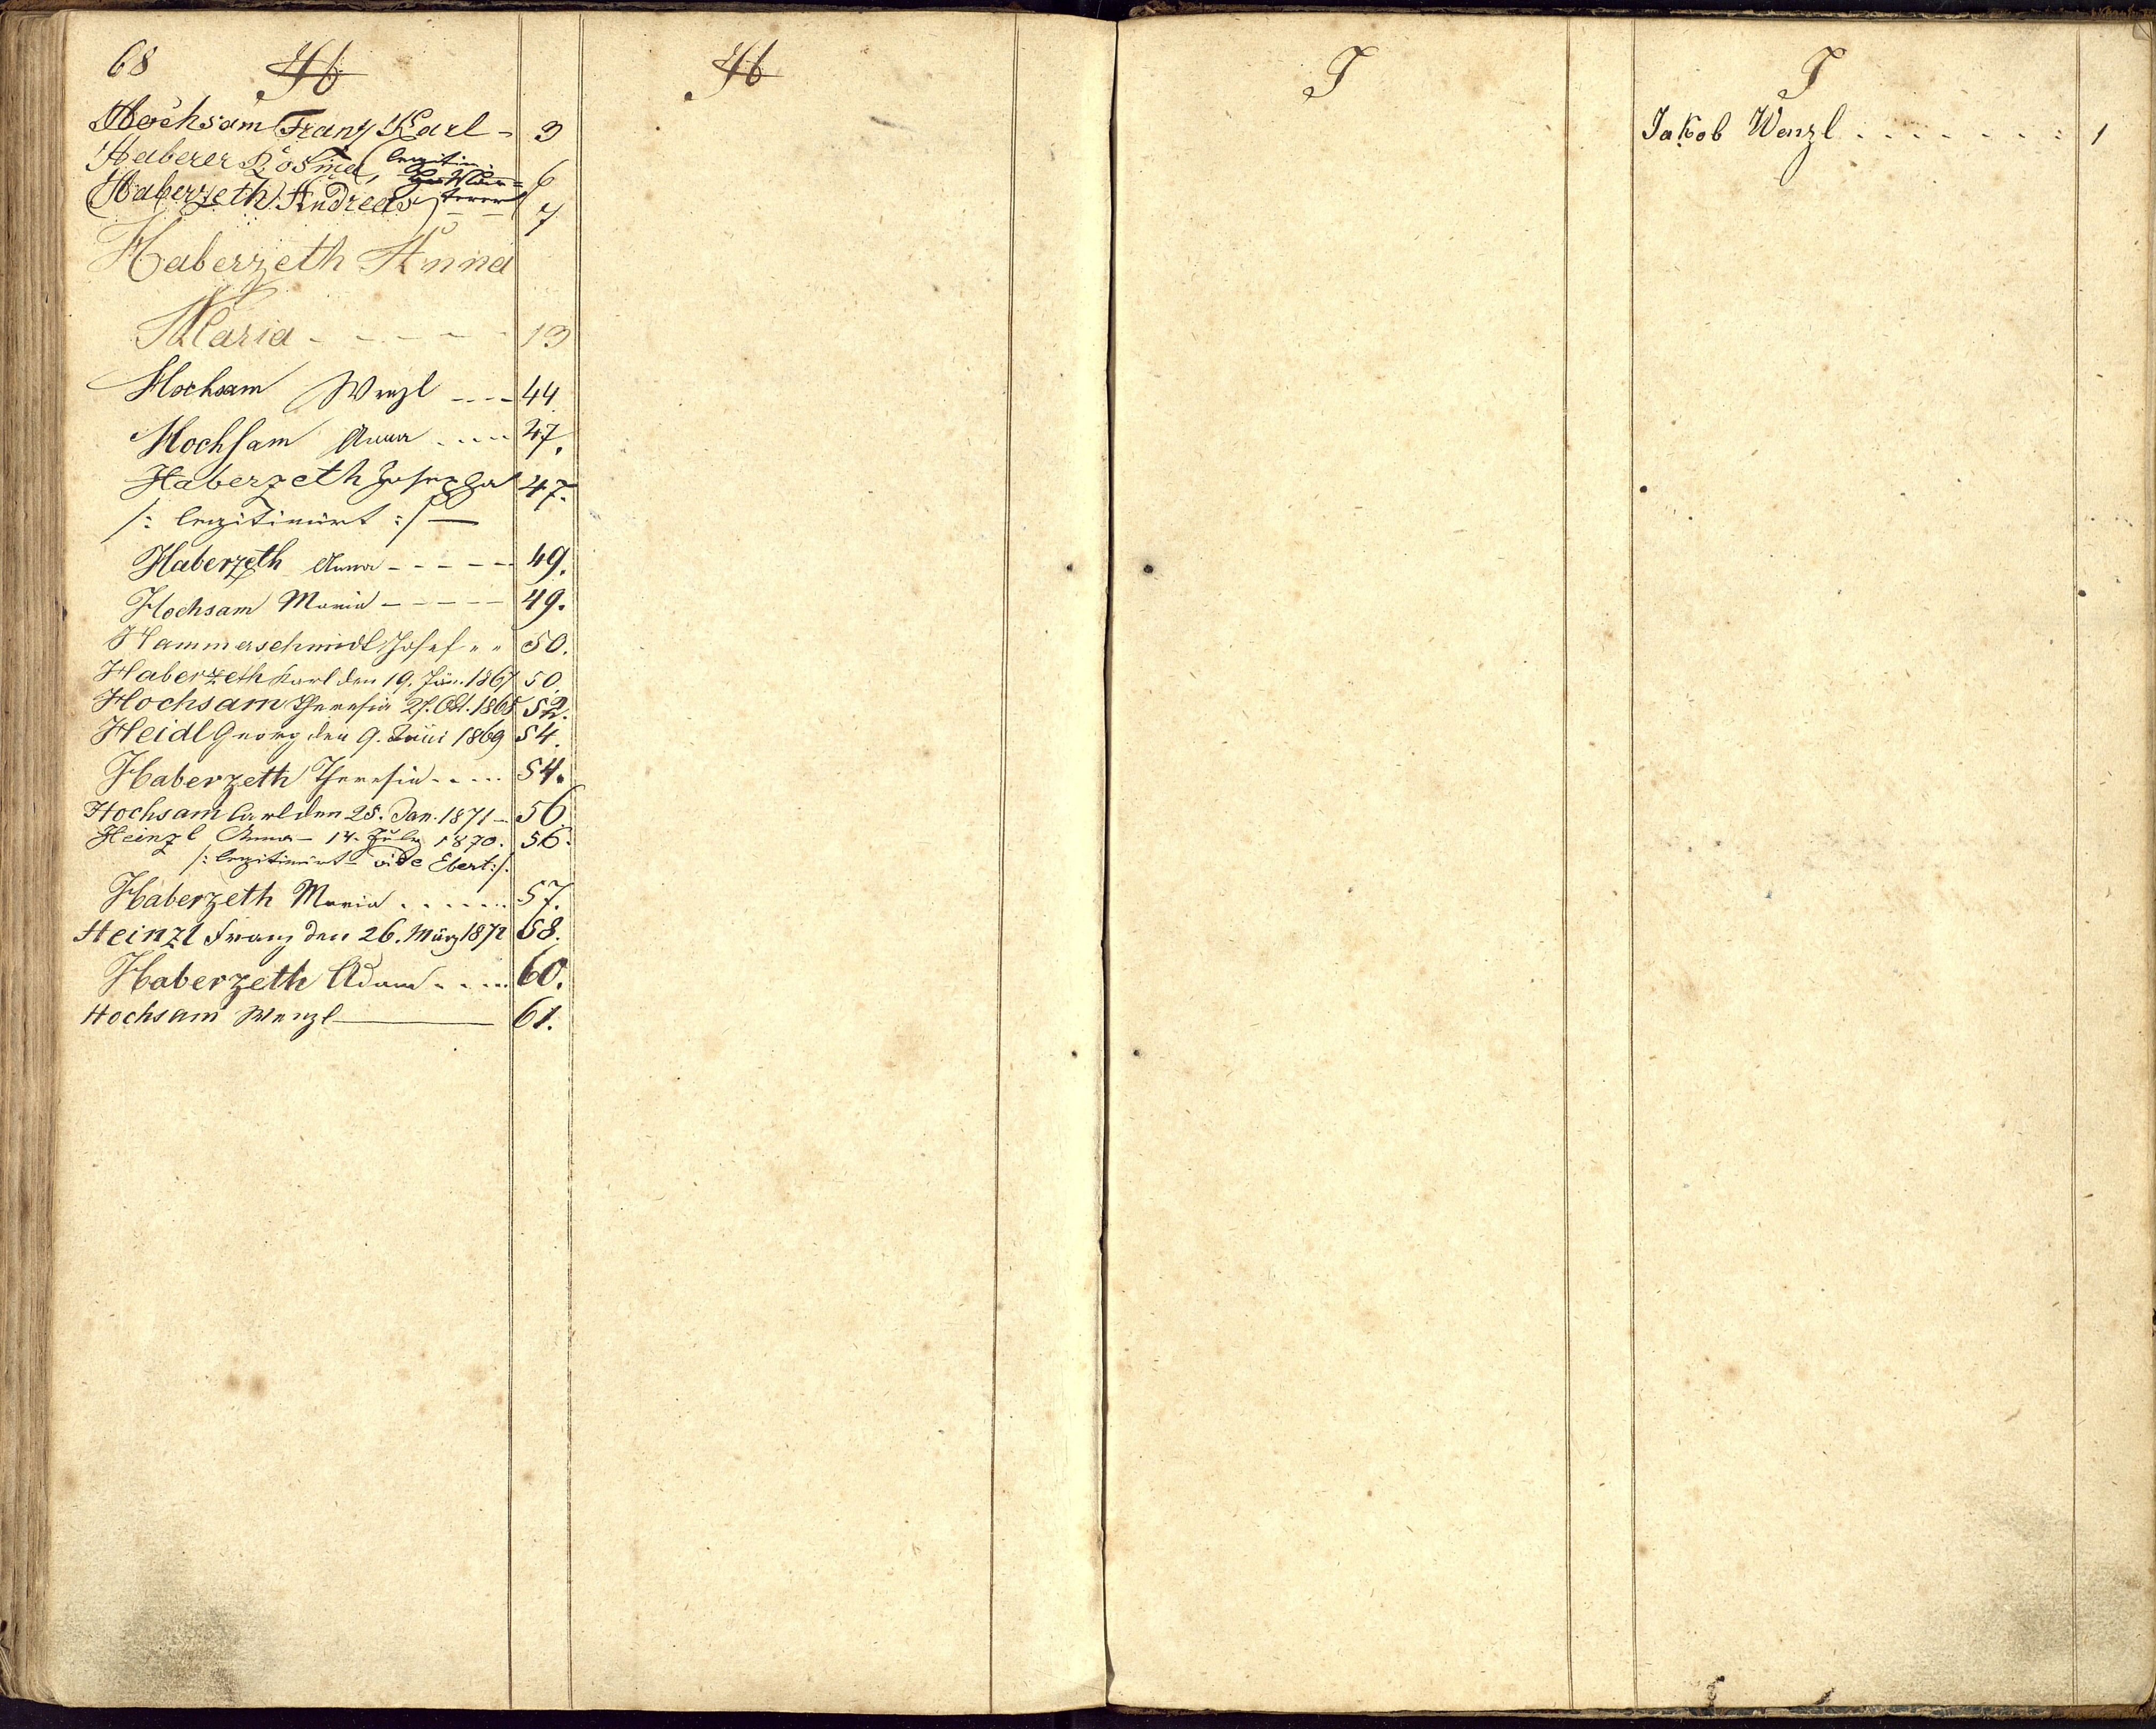 68
H
Hochsam Franz Karl - 3
Haberer Rosina, (legitim. 6
Haberzeth Andreas - - 7
Haberzeth Anna
Maria - - - - - 13
Hochsam Wenzl - - - 44
Hochsam Anna - - - - 47.
Haberzeth Josepha 47.
/: legitimirt :/ —
Haberzeth Anna - - - - - 49.
Hochsam Maria - - - - - 49.
Hammerschmidt Josef " " 50.
Haberzeth Karl den 19. Jän. 1867 50.
Hochsam Theresia 27. Okt. 1868 52.
Heidl Georg den 9. Juni 1869 54.
Haberzeth Theresia - - - - 54.
Hochsam Carl den 25. Jan. 1871 - 56.
Heinzl Anna - 14. July 1870. 56.
/: legitimirt - vide Ebert :/.
Haberzeth Maria . . . . . . 57.
Heinzl Franz den 26. März 1872 58.
Haberzeth Adam - - - - 60.
Hochsam Wenzl — 61.
H
J
J
Jakob Wenzl . . . . . . . : 1